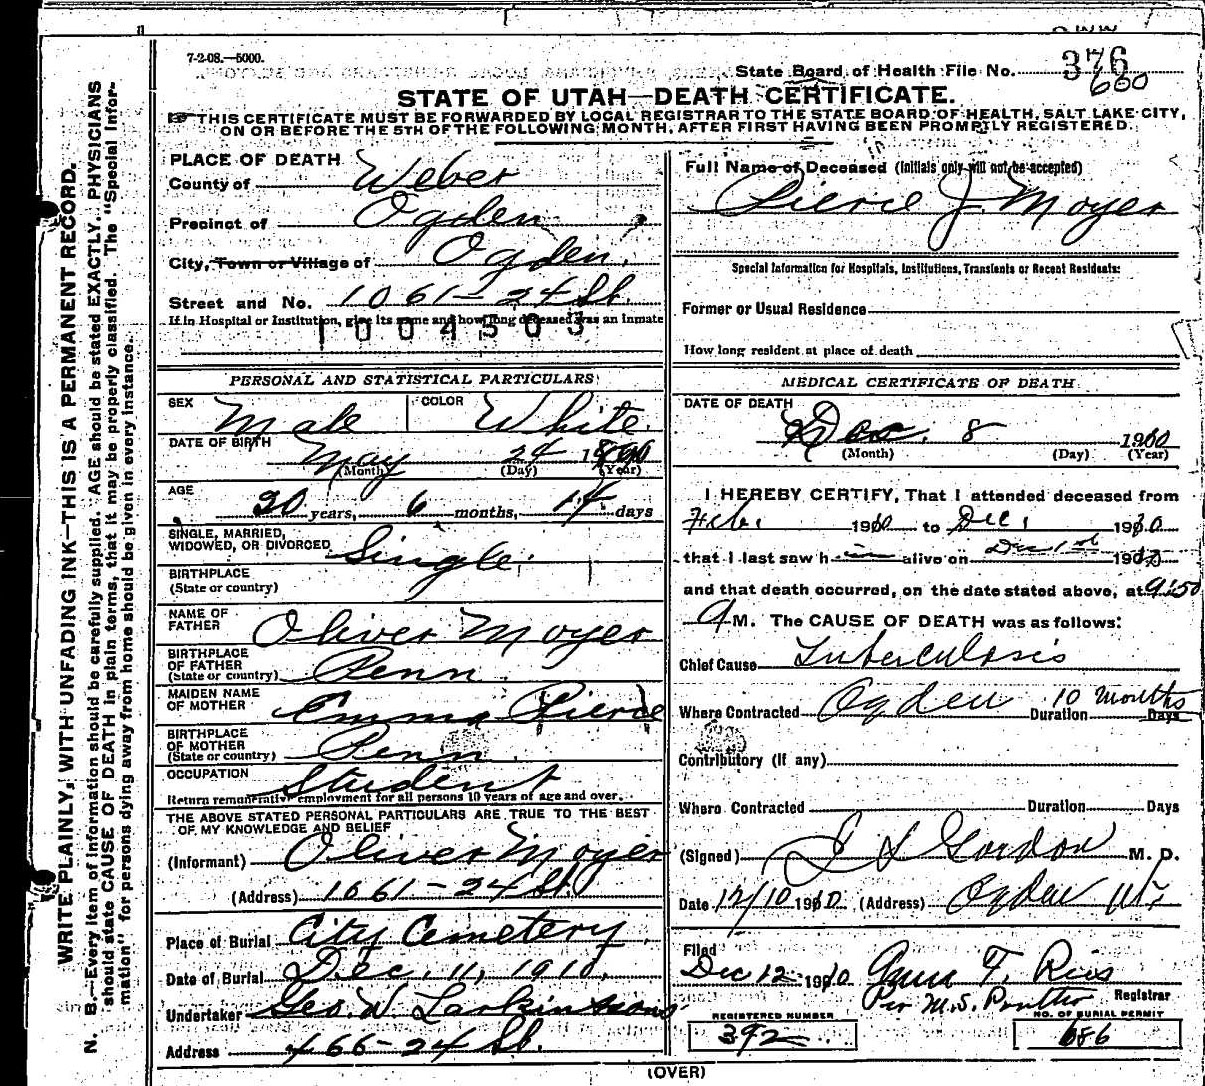 7-2-08.—5000.
State Board of Health File No. 376
600
STATE OF UTAH—DEATH CERTIFICATE.
THIS CERTIFICATE MUST BE FORWARDED BY LOCAL REGISTRAR TO THE STATE BOARD OF HEALTH, SALT LAKE CITY,
ON OR BEFORE THE 5TH OF THE FOLLOWING MONTH, AFTER FIRST HAVING BEEN PROMPTLY REGISTERED.
WRITE PLAINLY, WITH UNFADING INK—THIS IS A PERMANENT RECORD.
N. B.—Every item of information should be carefully supplied. AGE should be stated EXACTLY. PHYSICIANS
should state CAUSE OF DEATH in plain terms, that it may be properly classified. The "Special Infor-
mation" for persons dying away from home should be given in every instance.
PLACE OF DEATH
County of Weber
Precinct of Ogden
City, Town or Village of Ogden.
Street and No. 1061-24 St.
If in Hospital or Institution, give its name and how long deceased was an inmate
1004503
PERSONAL AND STATISTICAL PARTICULARS
SEX Male COLOR White.
DATE OF BIRTH May 24 1890
(Month) (Day) (Year)
AGE 20 years, 6 months, 14 days
SINGLE, MARRIED,
WIDOWED, OR DIVORCED Single.
BIRTHPLACE
(State or country)
NAME OF
FATHER Oliver Moyer
BIRTHPLACE
OF FATHER
(State or country) Penn.
MAIDEN NAME
OF MOTHER Emma Pierce
BIRTHPLACE
OF MOTHER
(State or country) Penn.
OCCUPATION Student
Return remunerative employment for all persons 10 years of age and over.
THE ABOVE STATED PERSONAL PARTICULARS ARE TRUE TO THE BEST
OF MY KNOWLEDGE AND BELIEF
(Informant) Oliver Moyer
(Address) 1061-24 St.
Place of Burial City Cemetery.
Date of Burial Dec. 11, 1910.
Undertaker Geo. W. Larkin & Sons
Address 466-24 St.
Full Name of Deceased (Initials only will not be accepted)
Pierce J. Moyer
Special Information for Hospitals, Institutions, Transients or Recent Residents:
Former or Usual Residence
How long resident at place of death
MEDICAL CERTIFICATE OF DEATH
DATE OF DEATH
Dec. 8 1910
(Month) (Day) (Year)
I HEREBY CERTIFY, That I attended deceased from
Feb. 1910 to Dec. 1910
that I last saw him alive on Dec 1st 1910
and that death occurred, on the date stated above, at 9:50
A M. The CAUSE OF DEATH was as follows:
Chief Cause Tuberculosis
Where Contracted Ogden Duration 10 Months Days
Contributory (if any)
Where Contracted Duration Days
(Signed) Gordon M. D.
Date 12/10 1910. (Address) Ogden Ut
Filed
Dec 12 1910 T. Rivs
Per M.S. Registrar
REGISTERED NUMBER
392
NO. OF BURIAL PERMIT
686
(OVER)